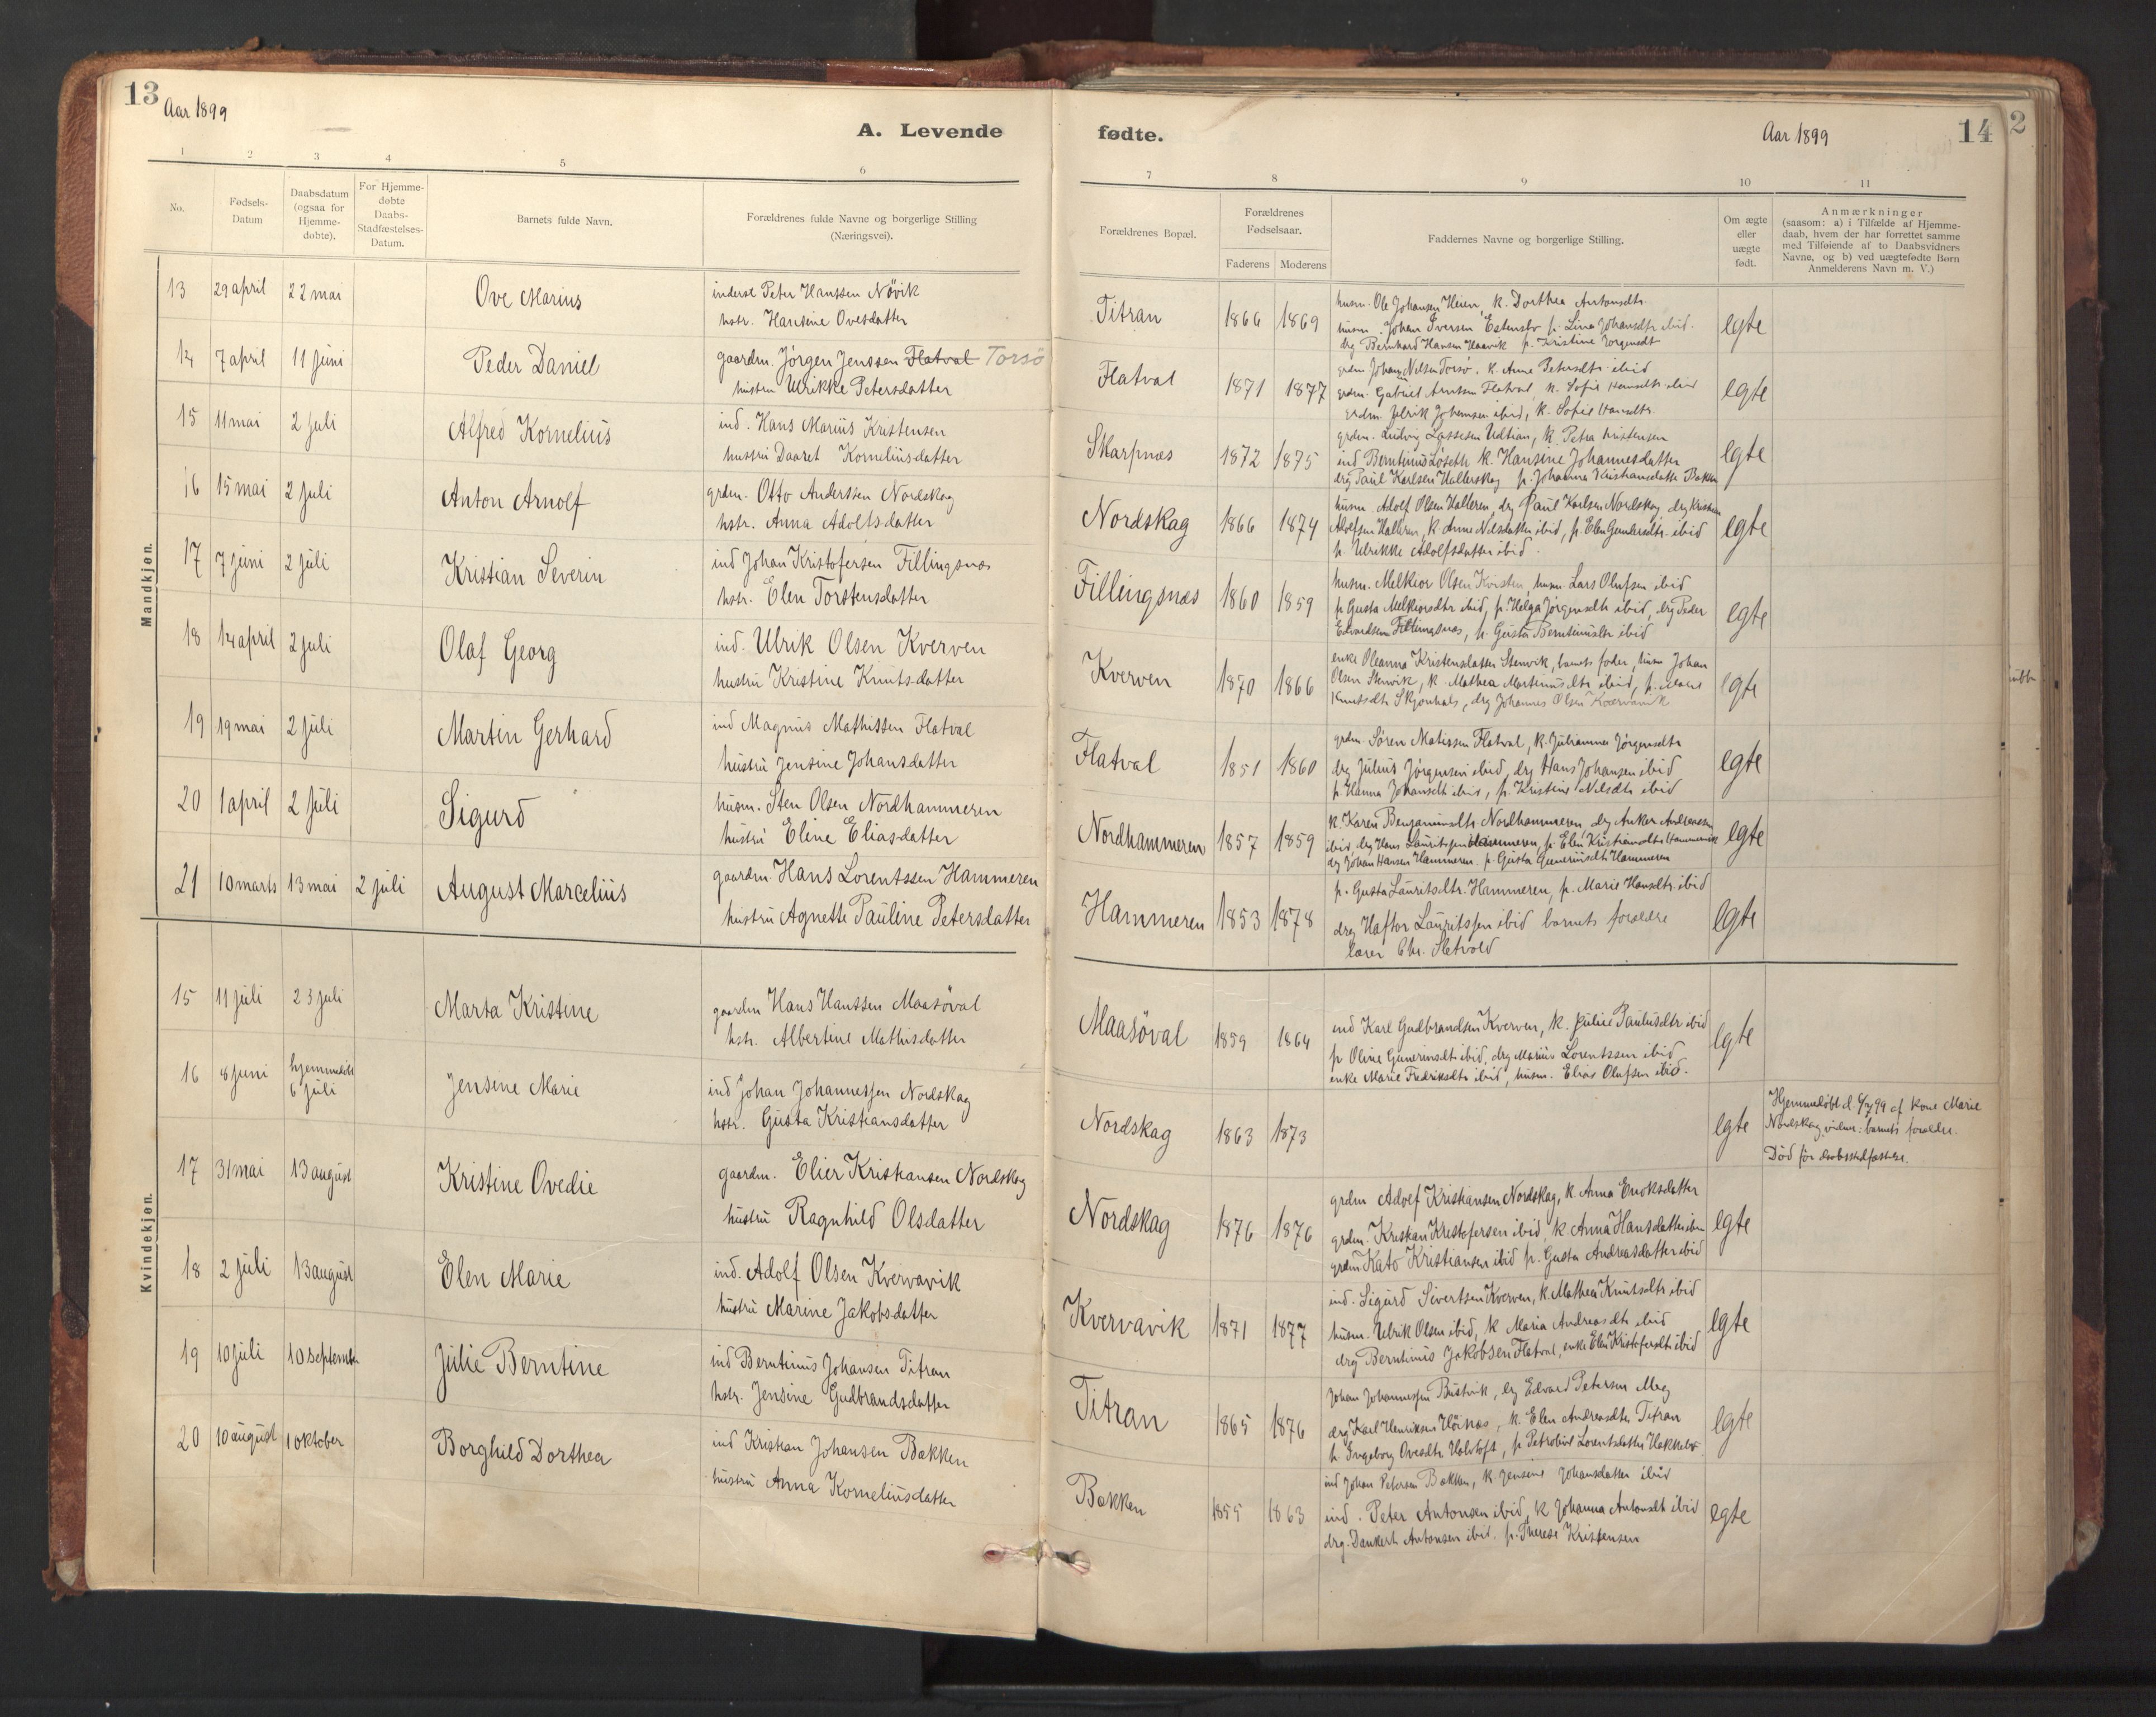 13
Aar 1899
A. Levende
1 2 3 4 5 6
No.
Fødsels-
Datum
Daabsdatum
(ogsaa for
Hjemme-
døbte).
For Hjemme-
døbte
Daabs-
Stadfæstelses-
Datum.
Barnets fulde Navn.
Forældrenes fulde Navne og borgerlige Stilling
(Næringsvei).
Mandkjøn.
13 29 april 22 mai Ove Marius
inderst Peter Hanssen Növik
hstr. Hansine Ovesdatter
14 7 april 11 juni Peder Daniel
gaardm. Jörgen Jenssen Flatval Torsö
hustru Ulrikke Petersdatter
15 11 mai 2 juli Alfred Kornelius
ind. Hans Marius Kristensen
hustru Daaret Korneliusdatter
16 15 mai 2 juli Anton Arnolf
grdm. Otto Anderssen Nordskag
hstr. Anna Adolfsdatter
17 7 juni 2 juli Kristian Severin
ind Johan Kristofersen Fillingsnæs
hstr. Elen Torstensdatter
18 14 april 2 juli Olaf Georg
ind. Ulrik Olsen Kverven
hustru Kristine Knutsdatter
19 19 mai 2 juli Martin Gerhard
ind Magnus Mathissen Flatval
hustru Jensine Johansdatter
20 1 april 2 juli Sigurd
husm. Sten Olsen Nordhammeren
hustru Eline Eliasdatter
21 10 marts 13 mai 2 juli August Marcelius
gaardm. Hans Lorentssen Hammeren
hustru Agnette Pauline Petersdatter
Kvindekjøn.
15 11 juli 23 juli Marta Kristine
gaardm Hans Hanssen Maasöval
hstr. Albertine Mathisdatter
16 8 juni hjemmedöbt
6 juli Jensine Marie
ind Johan Johannessen Nordskag
hstr. Gusta Kristiansdatter
17 31 mai 13 august Kristine Ovedie
gaardm. Elier Kristiansen Nordskag
hustru Ragnhild Olsdatter
18 2 juli 13 august Elen Marie
ind. Adolf Olsen Kvervavik
hustru Marine Jakobsdatter
19 10 juli 10 september Julie Berntine
ind Berntinus Johansen Titran
hstr. Jensine Gudbrandsdatter
20 10 august 1 oktober Borghild Dorthea
ind Kristian Johansen Bakken
hustru Anna Korneliusdatter
fødte.
Aar 1899
14
2
7 8 9 10 11
Forældrenes Bopæl.
Forældrenes
Fødselsaar.
Faderens Moderens
Faddernes Navne og borgerlige Stilling.
Om ægte
eller
uægte
født.
Anmærkninger
(saasom: a) i Tilfælde af Hjemme-
daab, hvem der har forrettet samme
med Tilføiende af to Daabsvidners
Navne, og b) ved uægtefødte Børn
Anmelderens Navn m. V.)
Titran 1866 1869 egte
husm. Ole Johansen Heien, k. Dorthea Antonsdtr.
husm. Johan Iversen p. Lina Johansdtr ibid.
drg Bernhard Hansen p. Kristine Jörgensdt
Flatval 1871 1877 egte
grdm Johan Nilsen Torsö. k. Anne Petersdtr ibid
grdm. Gabriel Arntsen Flatval, k. Sofie Hansdtr ibid
grdm. Johansen ibid, k. Sofie Hansdtr.
Skarpnæs 1872 1875 egte
grdm. Ludvig Lassesen Udtian, k. Petra Kristensen
ind Berntinus Löseth k. Hansine Johannesdatter
drg Paul Karlsen p. Johanna Kristiansdatter Bakken
Nordskag 1866 1874 egte
husm. Adolf Olsen Hallaren, drg Paul Karlsen Nordskag, drg Kristian
Adolfsen Hallaren, k. Anne Nilsdatter ibid, p. Elen Gundersdtr. ibid
p. Ulrikke Adolfsdatter ibid.
Fillingsnæs 1860 1859 egte
husm. Melkior Olsen Kvisten, husm. Lars Olufsen ibid
p Gusta Melkiorsdtr ibid, p. Helga Jörgensdtr ibid, drg Peder
Edvardsen Fillingsnæs, p. Gusta Berntinusdtr ibid
Kverven 1870 1866 egte
enke Oleanna Kristensdatter Stenvik, barnets fader, husm Johan
Olsen Stenvik, k. Mathea Martinusdtr ibid, p.
Knutsdtr Skjönhals, drg Johannes Olsen Kvervavik
Flatval 1851 1860 egte
grdm. Sören Matissen Flatval, k. Julianna Jörgensdtr
drg Julius Jörgensen ibid, drg Hans Johansen ibid
p. Hanna Johansdtr ibid, p. Kristine Nilsdtr ibid
Nordhammeren 1857 1859 egte
k. Karen Benjaminsdtr Nordhammeren, drg Anker Andreassen
ibid, drg Hans Lauritssen Hammeren, p. Elen Kristiansdtr Hammervik
drg Johan Hansen Hammeren. p. Gusta Gunerius­dtr Hammeren
Hammeren 1853 1878 egte
p. Gusta Lauritsdtr. Hammeren, p. Marie Hansdtr. ibid
drg Haftor Lauritssen ibid barnets forældre
lærer Chr. Sletvold
Maasöval 1859 1864 egte
ind Karl Gudbrandsen Kverven, k. Julie Paulusdtr ibid
p Oline Guneriusdtr ibid, drg Marius Lorentssen ibid
enke Marie Fredriksdtr ibid, husm. Elias Olufsen ibid.
Nordskag 1863 1873 egte
Hjemmedöbt d. 6/7 99 af kone Marie
Nordskag, vidner: barnets forældre.
Död för daabsstadfæstelse.
Nordskag 1876 1876 egte
grdm Adolf Kristiansen Nordskag, k. Anna Eriksdatter
grdm. Kristian Kristofersen ibid, k Anna Hansdatter ibm
grdm Kato Kristiansen ibid p. Gusta Andreasdatter ibid
Kvervavik 1871 1877 egte
ind. Sigurd Sivertsen Kverven, k. Mathea Knutsdtr ibid
husm. Ulrik Olsen ibid, k Maria Andreasdtr ibid
drg Berntinus Jakobsen Flatval, enke Elen Kristofersdtr ibid
Titran 1865 1876 egte
Johan Johannessen Bustvik, drg Edvard Petersen Meg
drg Karl Henriksen Höinæs, k. Elen Andreasdtr Titran
p. Ingeborg Ovesdtr p Petrobine Lorentsdatter
Bakken 1855 1863 egte
ind Johan Petersen Bakken, k. Jensine Johansdatter ibid
ind. Peter Antonsen ibid, k Johanna Antonsdt ibid
drg. Dankert Antonsen ibid. p. Therese Kristensen